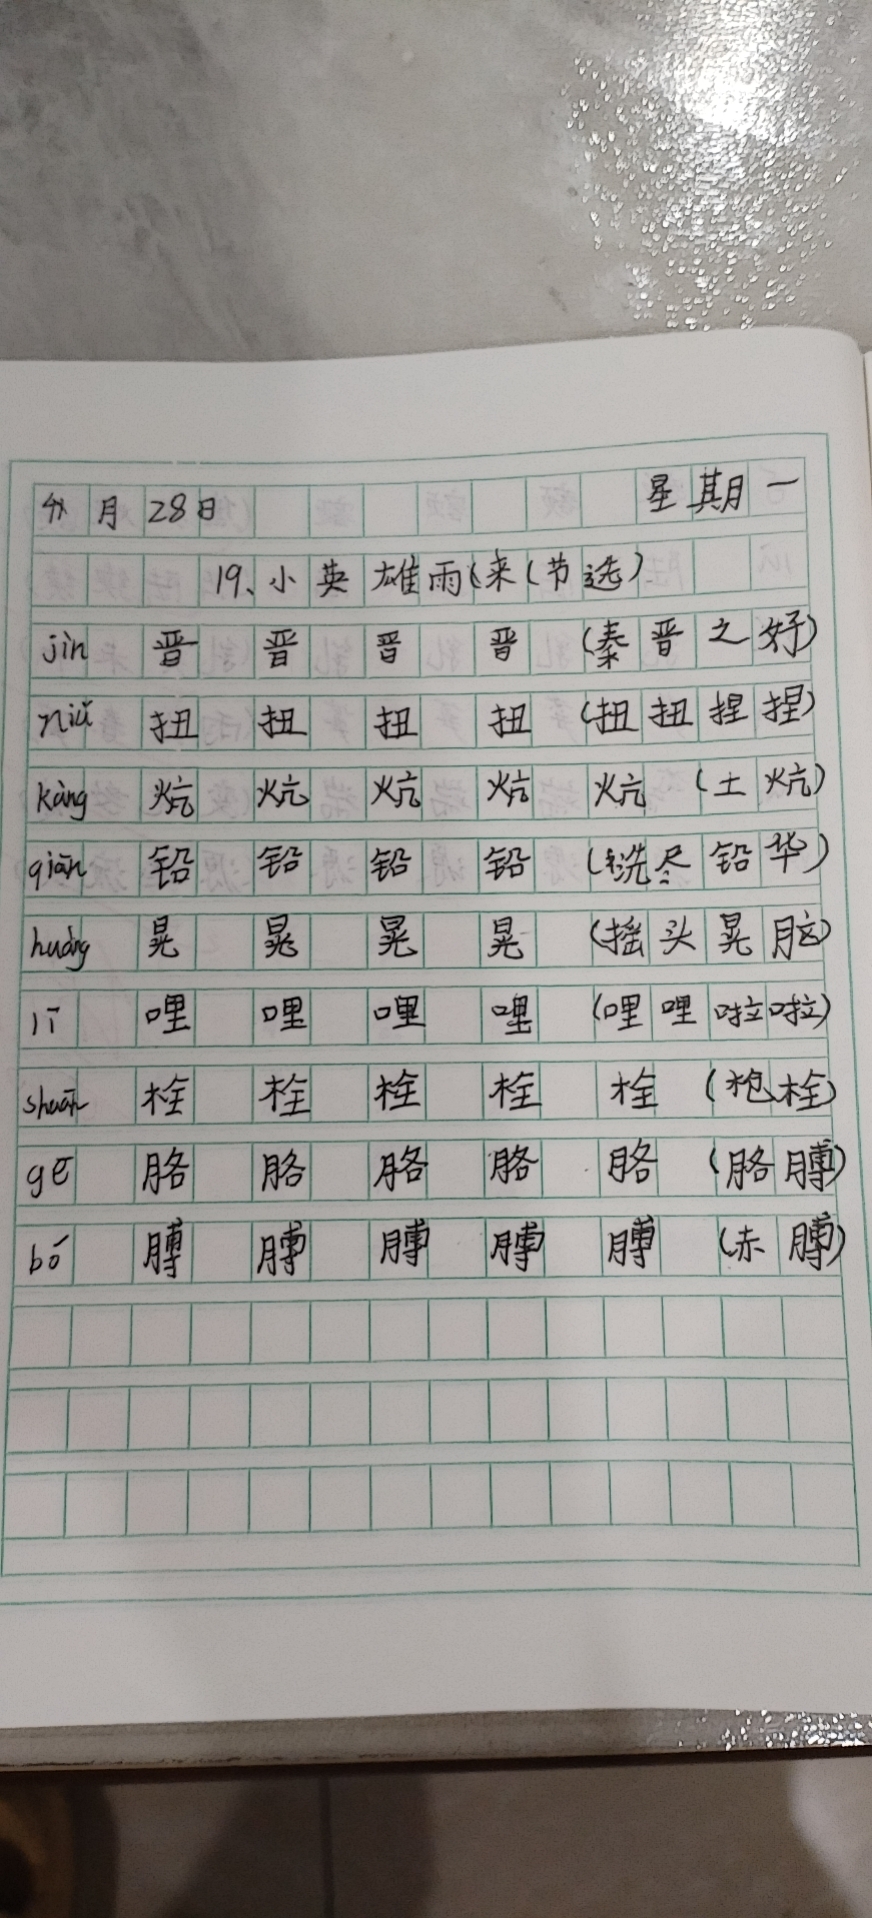 月28日 星期一
19、小英雄雨来(节选)
jìn 晋 晋 晋 晋 (秦晋之好)
niǔ 扭 扭 扭 扭 (扭扭捏捏)
kàng 炕 炕 炕 炕 炕 (土炕)
qiān 铅 铅 铅 铅 (洗尽铅华)
huàng 晃 晃 晃 晃 (摇头晃脑)
lī 哩 哩 哩 哩 (哩哩啦啦)
shuān 栓 栓 栓 栓 栓 (枪栓)
gē 胳 胳 胳 胳 胳 (胳膊)
bó 膊 膊 膊 膊 膊 (赤膊)